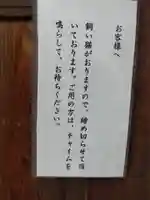 お客様へ
飼い猫がおりますので、締め切らせて頂
いております。ご用の方は、チャイムを
鳴らして、お待ちください。